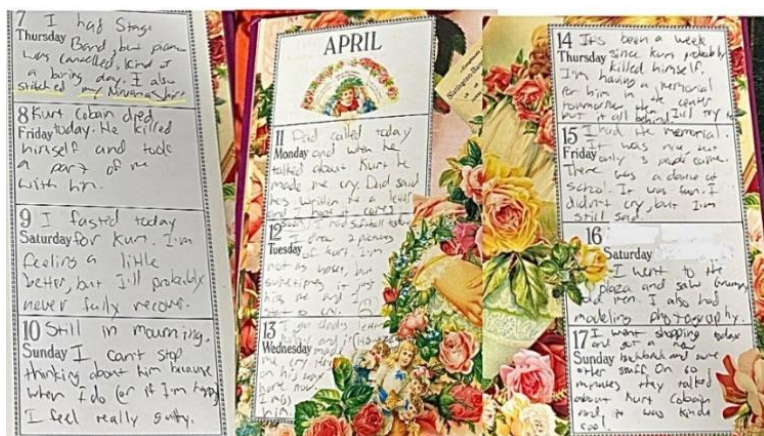 7 I had Stage
Thursday Band, but piano
was cancelled, kind of
a boring day. I also
stitched my Nirvana shirt
8 Kurt Cobain died
Friday today. He killed
himself and took
a part of me
with him.
9 I fasted today
Saturday for Kurt. I'm
feeling a little
better, but I'll probably
never fully recover.
10 Still in mourning,
Sunday I can't stop
thinking about him because
when I do (or if I'm happy)
I feel really guilty.
APRIL
11 Dad called today
Monday and when he
talked about Kurt he
made me cry. Dad said
he's written me a letter
and I hope it comes
soon. I had softball today
12 I drew 2 pictures
Tuesday of Kurt. I'm
not as upset, but
sometimes it just
hits me and I
start to cry.
13 I got dad's letter
Wednesday
me cry
on his way
home now
I miss
him.
14 It's been a week
Thursday since Kurt probably
killed himself.
I'm having a memorial
for him in the center
tommorow
but it all behind I'll try to
15 I had the memorial.
Friday It was nice but
only 3 people came.
There was a dance at
school. It was fun. I
didn't cry, but I'm
still sad.
16
Saturday
I went to the
plaza and saw Grumpy
old men. I also had
modeling photography.
17 I went shopping today
Sunday and got a new
backpack and some
other stuff. On 60
minutes they talked
about Kurt Cobain
and it was kinda
cool.